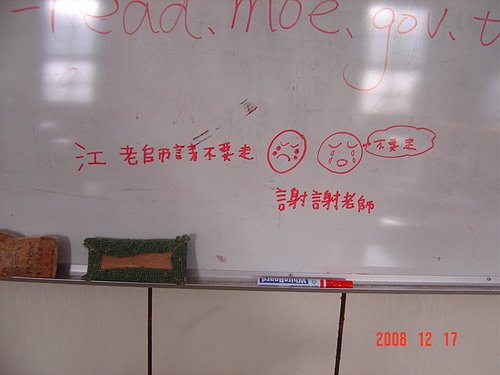 -read.moe.gov.t
江老師請不要走
不要走
謝謝老師
WhiteBoard
2008 12 17